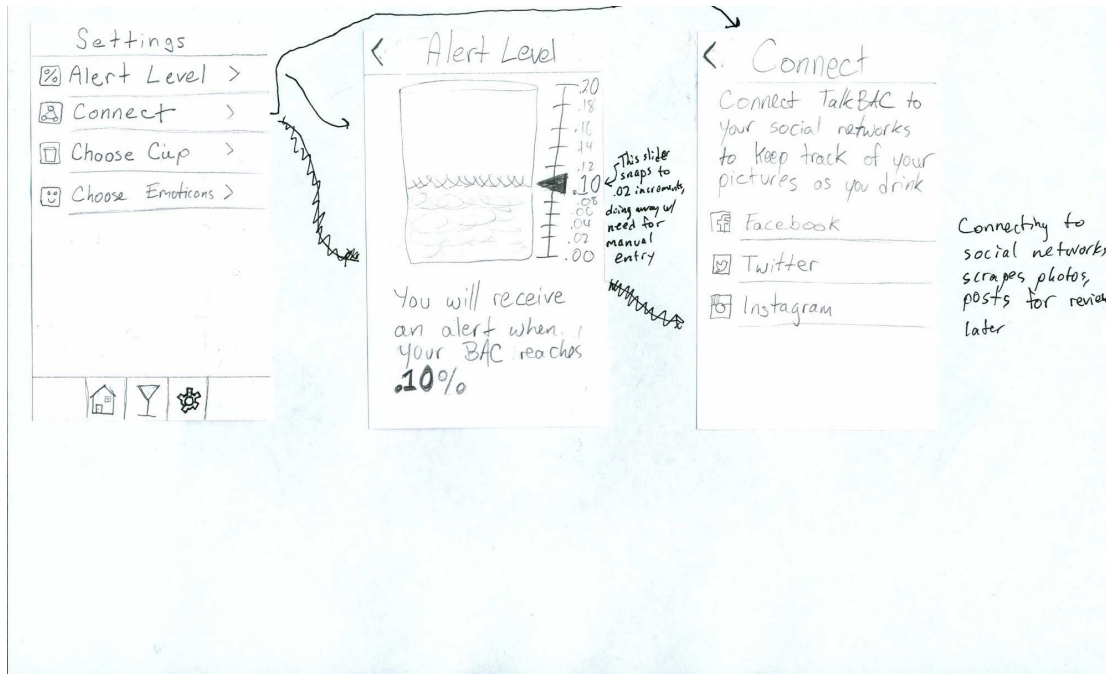 Settings
% Alert Level >
Connect >
Choose Cup >
Choose Emoticons >
< Alert Level
.20
.18
.16
.14
.12
.10
.08
.06
.04
.02
.00
This slider
snaps to
.02 increments,
doing away w/
need for
manual
entry
You will receive
an alert when
your BAC reaches
.10%
< Connect
Connect TalkBAC to
your social networks
to keep track of your
pictures as you drink
Facebook
Twitter
Instagram
Connecting to
social networks
scrapes photos,
posts for review
later